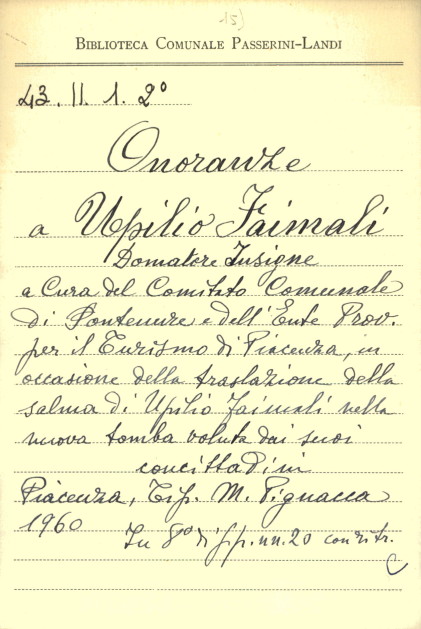 15)
BIBLIOTECA COMUNALE PASSERINI-LANDI
43. II. 1. 2°
Onoranze
a Upilio Faimali
Domatore Insigne
a Cura del Comitato Comunale
di Pontenure e dell'Ente Prov.
per il Turismo di Piacenza, in
occasione della traslazione della
salma di Upilio Faimali nella
nuova tomba voluta dai suoi
concittadini
Piacenza, Tip. M. Pignacca
1960
In 8° di pp. nn. 20 con ritr.
C